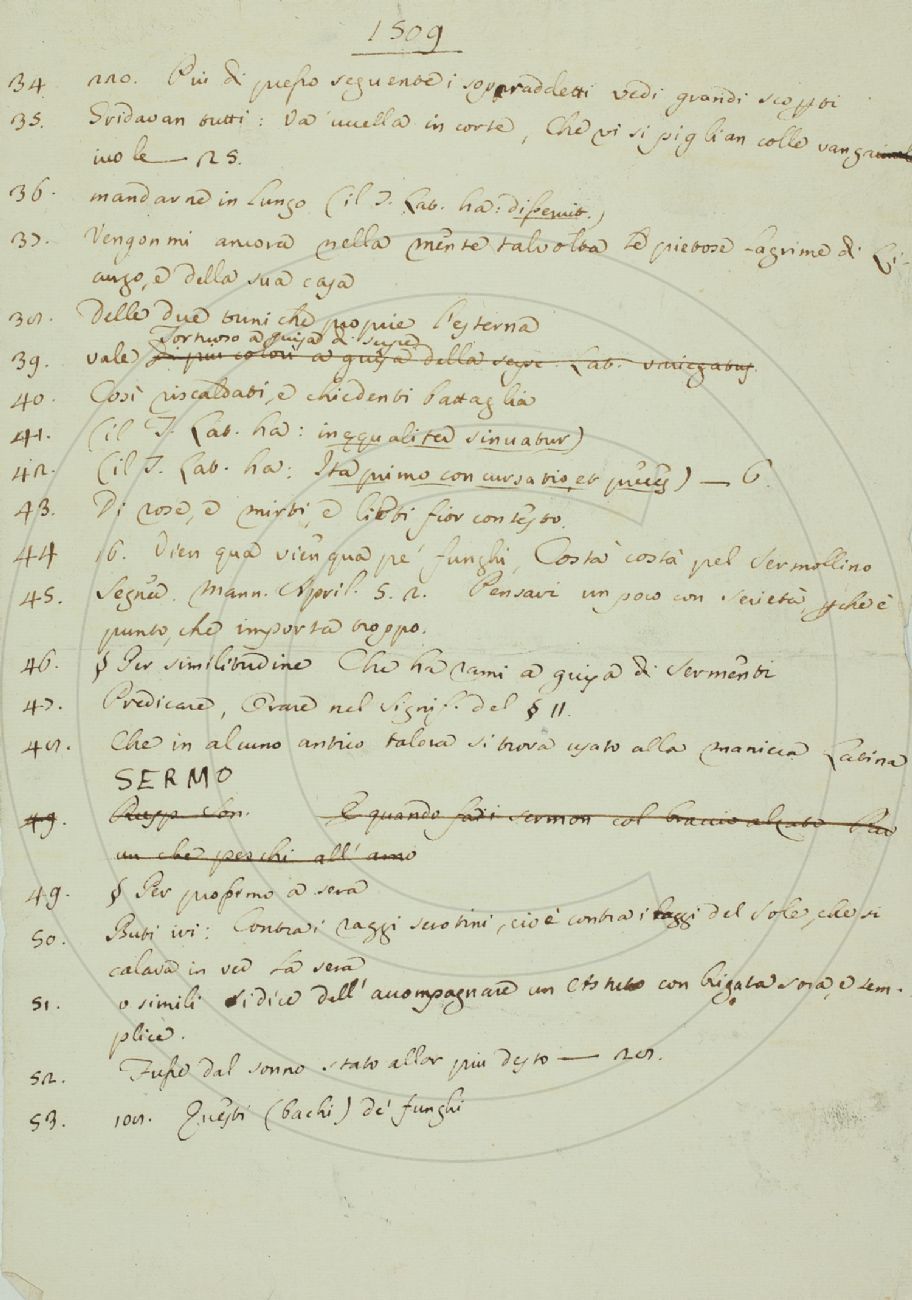 1509
34 220. Più di presso seguente i sopraddetti vedi grandi scoppi
35. Gridavan tutti: Va' uccella in corte, Che vi si piglian colle vangaiuole
iuole — 25.
36. mandarne in lungo (il T. Lat. ha: disseruit.)
37. Vengonmi ancora nella mente talvolta le pietose lagrime di Li-
curgo, e della sua casa
38. Delle due tuniche proprie l'esterna
Tortuoso a guisa di serpe
39. vale di più colori a guisa della serpe. Lat. variegatus
40. Così riscaldati, e chiedenti battaglia
41. (il T. Lat. ha: inæqualiter sinuatur)
42. (il T. Lat. ha: Ita primo concursatio, et preces) — 6.
43. Di rose, e mirti, e lieti fior contesto.
44 16. Vien quà vien quà pe' funghi, Costà costà pel Sermollino
45. Segner. Mann. April. 5. 2. Pensavi un poco con serietà, perchè è
punto, che importa troppo.
46. § Per similitudine Che ha rami a guisa di Sermenti
47. Predicare, Orare nel signif. del § II.
48. Che in alcuno antico talora si trova usato alla maniera Latina
SERMO
49. Busp. Son. E quando fari sermon col braccio alzato Par
un che peschi all' amo
49. § Per prossimo a sera
50. Buti ivi: Contra i raggi serotini, cioè contra i raggi del Sole, che si
calava in ver la sera
51. o simili si dice dell' accompagnare un Astuto con brigata sora, e sem-
plice.
52. Fusse dal sonno stato allor più desto — 28.
53. 108. Questi (bachi) de' funghi